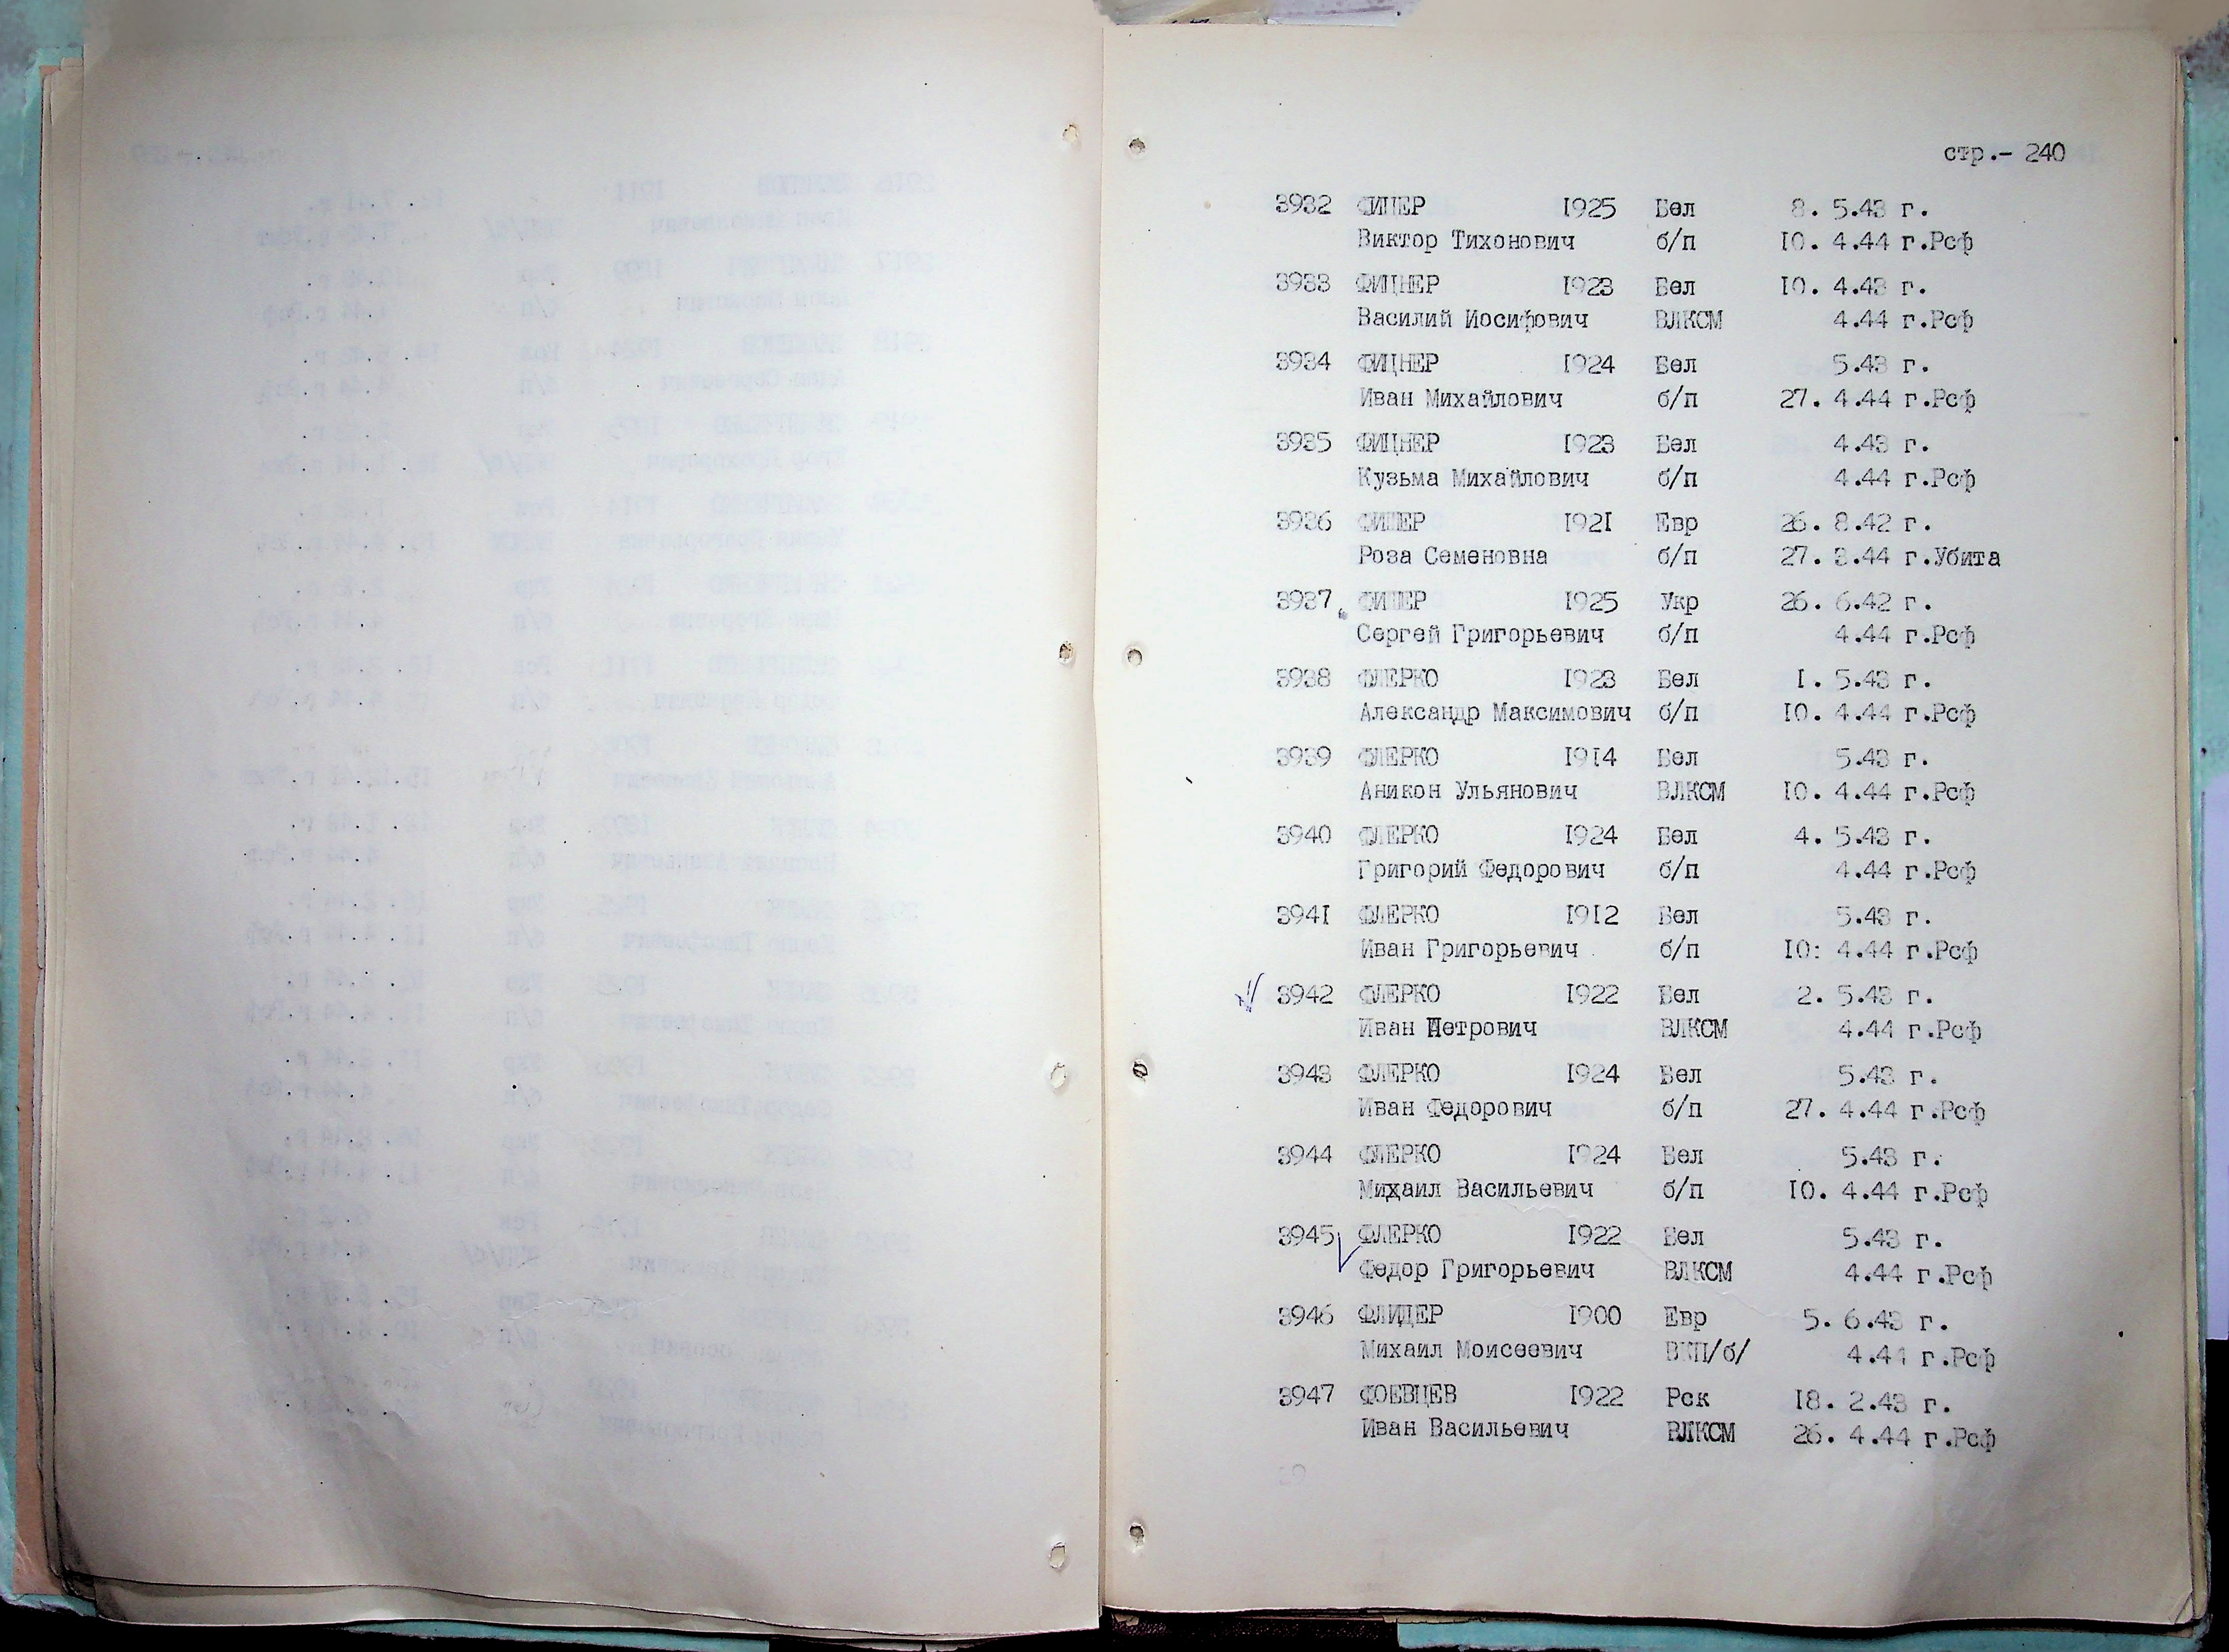 стр.- 240
3932 ФИЦЕР 1925 Бел 8. 5.43 г.
Виктор Тихонович б/п 10. 4.44 г.Рсф
3933 ФИЦНЕР 1923 Бел 10. 4.43 г.
Василий Иосифович ВЛКСМ 4.44 г.Рсф
3934 ФИЦНЕР 1924 Бел 5.43 г.
Иван Михайлович б/п 27. 4.44 г.Рсф
3935 ФИЦНЕР 1923 Бел 4.43 г.
Кузьма Михайлович б/п 4.44 г.Рсф
3936 1921 Евр 26. 8.42 г.
Роза Семеновна б/п 27. 3.44 г.Убита
3937 1925 Укр 26. 6.42 г.
Сергей Григорьевич б/п 4.44 г.Рсф
3938 ФЛЕРКО 1923 Бел 1. 5.43 г.
Александр Максимович б/п 10. 4.44 г.Рсф
3939 ФЛЕРКО 1914 Бел 5.43 г.
Аникон Ульянович ВЛКСМ 10. 4.44 г.Рсф
3940 ФЛЕРКО 1924 Бел 4. 5.43 г.
Григорий Федорович б/п 4.44 г.Рсф
3941 ФЛЕРКО 1912 Бел 5.43 г.
Иван Григорьевич б/п 10: 4.44 г.Рсф
3942 ФЛЕРКО 1922 Бел 2. 5.43 г.
Иван Петрович ВЛКСМ 4.44 г.Рсф
3943 ФЛЕРКО 1924 Бел 5.43 г.
Иван Федорович б/п 27. 4.44 г.Рсф
3944 ФЛЕРКО 1924 Бел 5.43 г.
Михаил Васильевич б/п 10. 4.44 г.Рсф
3945 ФЛЕРКО 1922 Бел 5.43 г.
Федор Григорьевич ВЛКСМ 4.44 г.Рсф
3946 ФЛИДЕР 1900 Евр 5. 6.43 г.
Михаил Моисеевич ВКП/б/ 4.44 г.Рсф
3947 ФОЕВЦЕВ 1922 Рск 18. 2.43 г.
Иван Васильевич ВЛКСМ 26. 4.44 г.Рсф